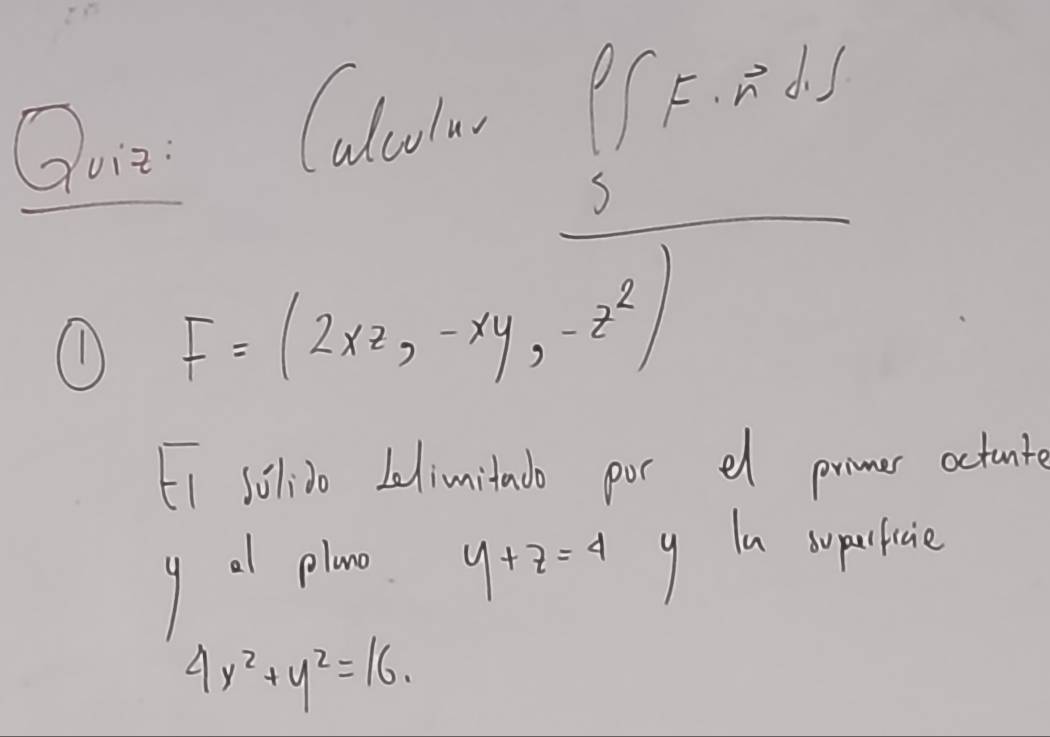 Quiz: Calcular ∬ F . n⃗ d.S
S
① F = (2xz, -xy, -z²)
El sólido delimitado por el primer octante
y el plano y+z=4 y la superficie
4x²+y²=16.